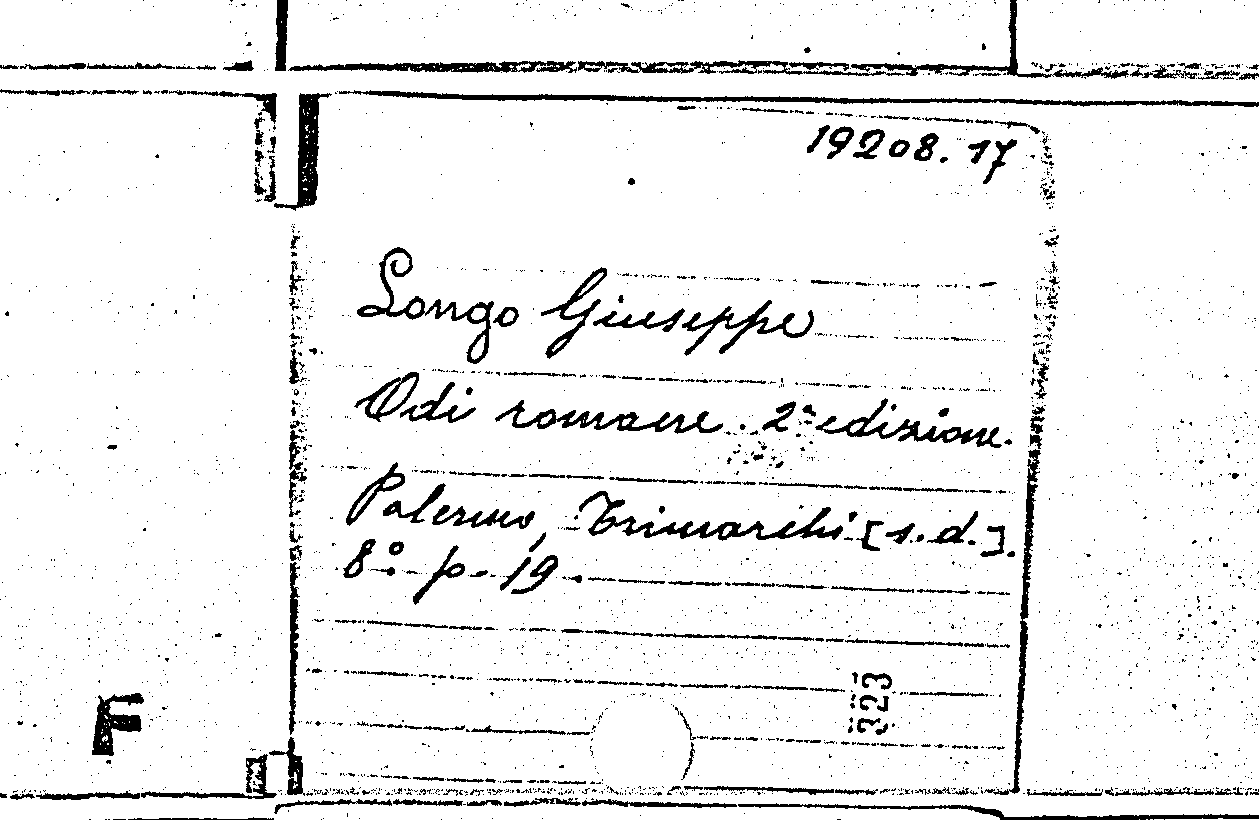 19208.17
Longo Giuseppe
Odi romane. 2ª edizione.
Palermo, Trimarchi [s.d.].
8° p. 19.
323
F